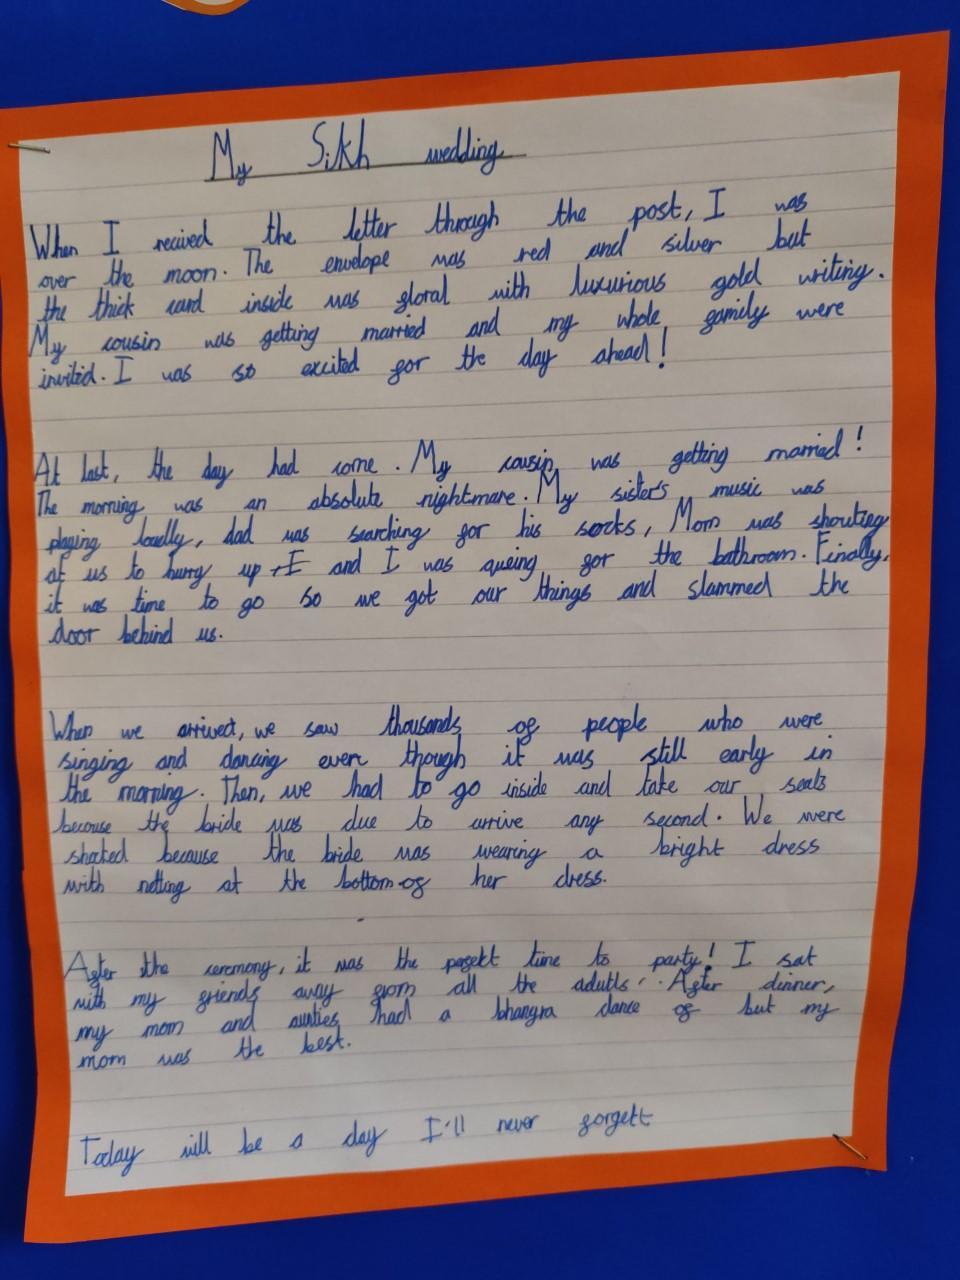 My Sikh wedding
When I recived the letter through the post, I was
over the moon. The envelope was red and silver but
the thick card inside was floral with luxurious gold writing.
My cousin was getting married and my whole family were
invited. I was so excited for the day ahead!
At last, the day had come. My cousin was getting married!
The morning was an absolute nightmare. My sister's music was
playing loudly, dad was searching for his socks, Mom was shouting
at us to hurry up and I was queing for the bathroom. Finally,
it was time to go so we got our things and slammed the
door behind us.
When we arrived, we saw thousands of people who were
singing and dancing even though it was still early in
the morning. Then, we had to go inside and take our seats
because the bride was due to arrive any second. We were
shocked because the bride was wearing a bright dress
with netting at the bottom of her dress.
After the ceremony, it was the pefekt time to party! I sat
with my friends away from all the adutls. After dinner,
my mom and aunties had a bhangra dance of but my
mom was the best.
Today will be a day I'll never forgett